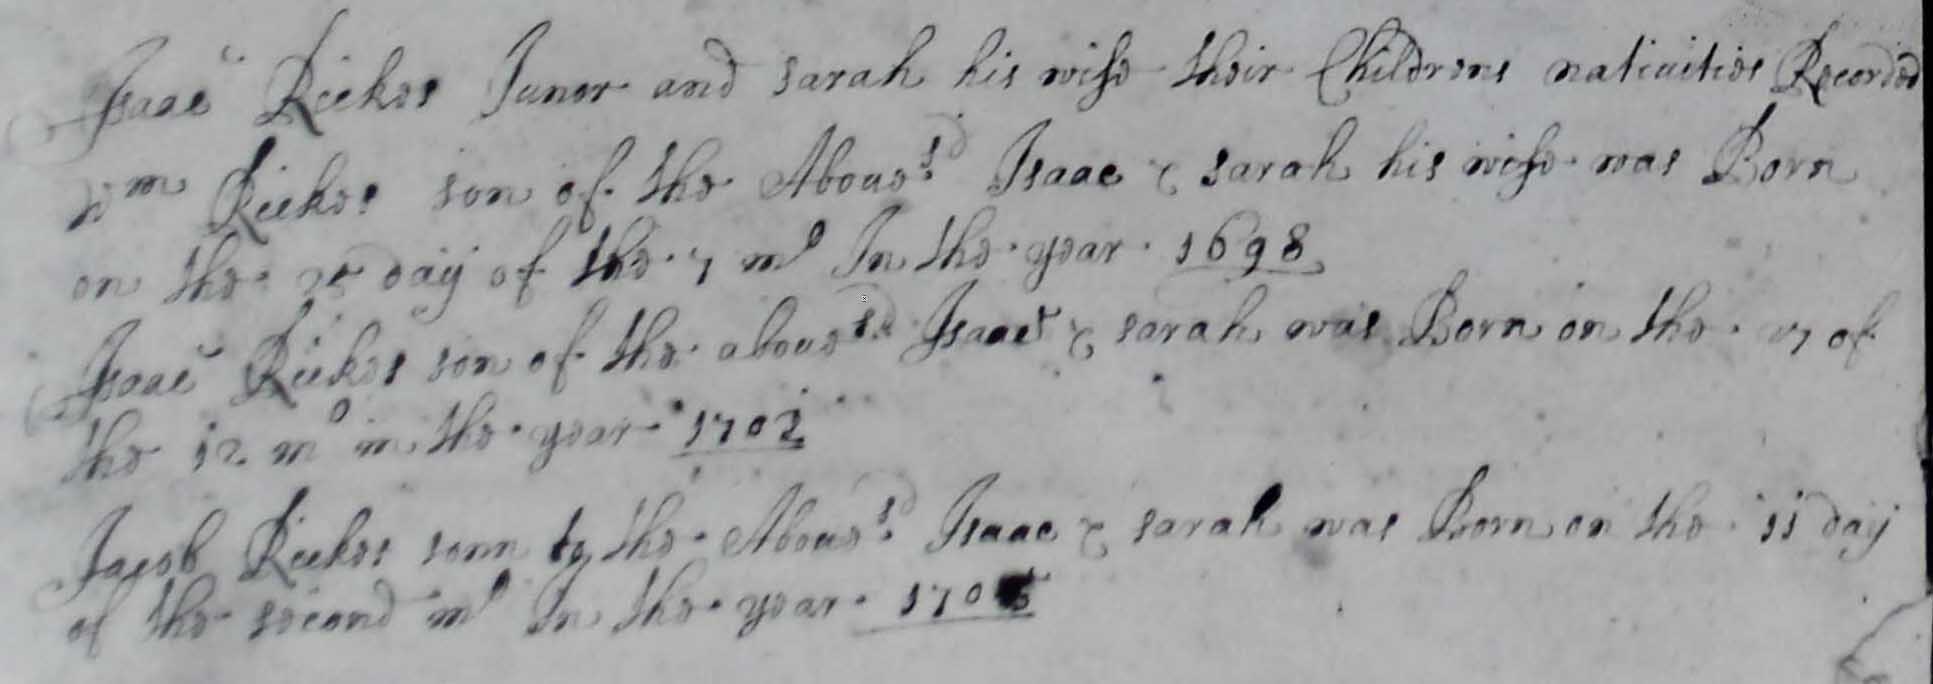 Isaac Rickes Junor and sarah his wife their Childrens natiuities Recorded
Wm Rickes son of the Aboue sd Isaac & sarah his wife was Born
on the day of the 7 mo In the year 1698
Isaac Rickes son of the aboue sd Isaac & sarah was Born on the of
the 12 mo in the year 1702
Jacob Rickes sonn to the Aboue sd Isaac & sarah was Born on the 11 day
of the second mo In the year